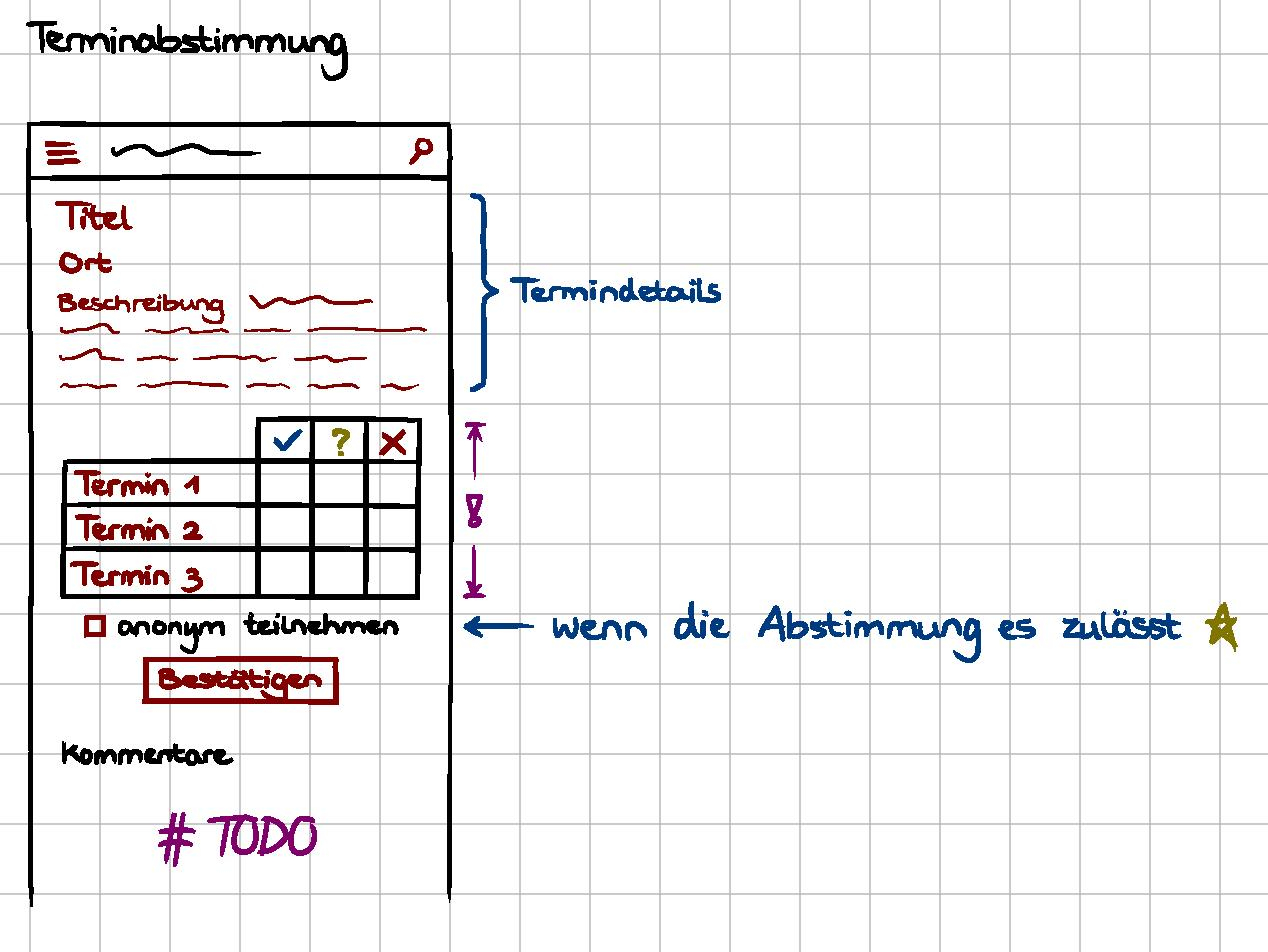 Terminabstimmung
Titel
Ort
Beschreibung
Termindetails
?
Termin 1
Termin 2
Termin 3
anonym teilnehmen
wenn die Abstimmung es zulässt
Bestätigen
Kommentare
# TODO